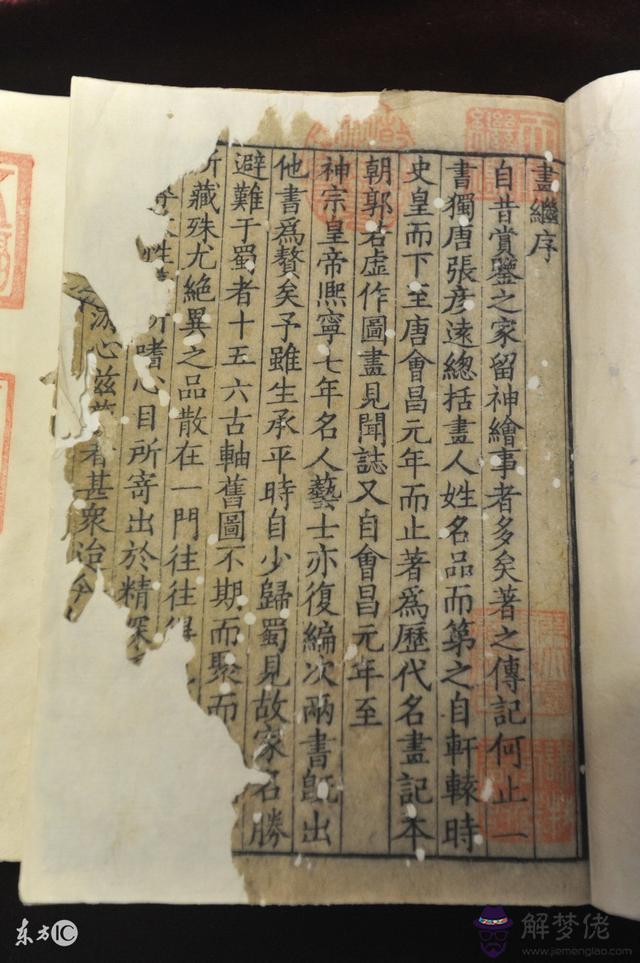 畫繼序
自昔賞鑒之家留神繪事者多矣著之傳記何止一
書獨唐張彦遠總括畫人姓名品而第之自軒轅時
史皇而下至唐會昌元年而止著爲歷代名畫記本
朝郭若虛作圖畫見聞誌又自會昌元年至
神宗皇帝熈寧七年名人藝士亦復編次兩書旣出
他書爲贅矣予雖生承平時自少歸蜀見故家名勝
避難于蜀者十五六古軸舊圖不期而聚而
所藏殊尤絶異之品散在一門往往得
性所嗜心目所寄出於精深
游心兹藝者甚衆迨今
东方IC
解梦佬
www.jiemenglao.com